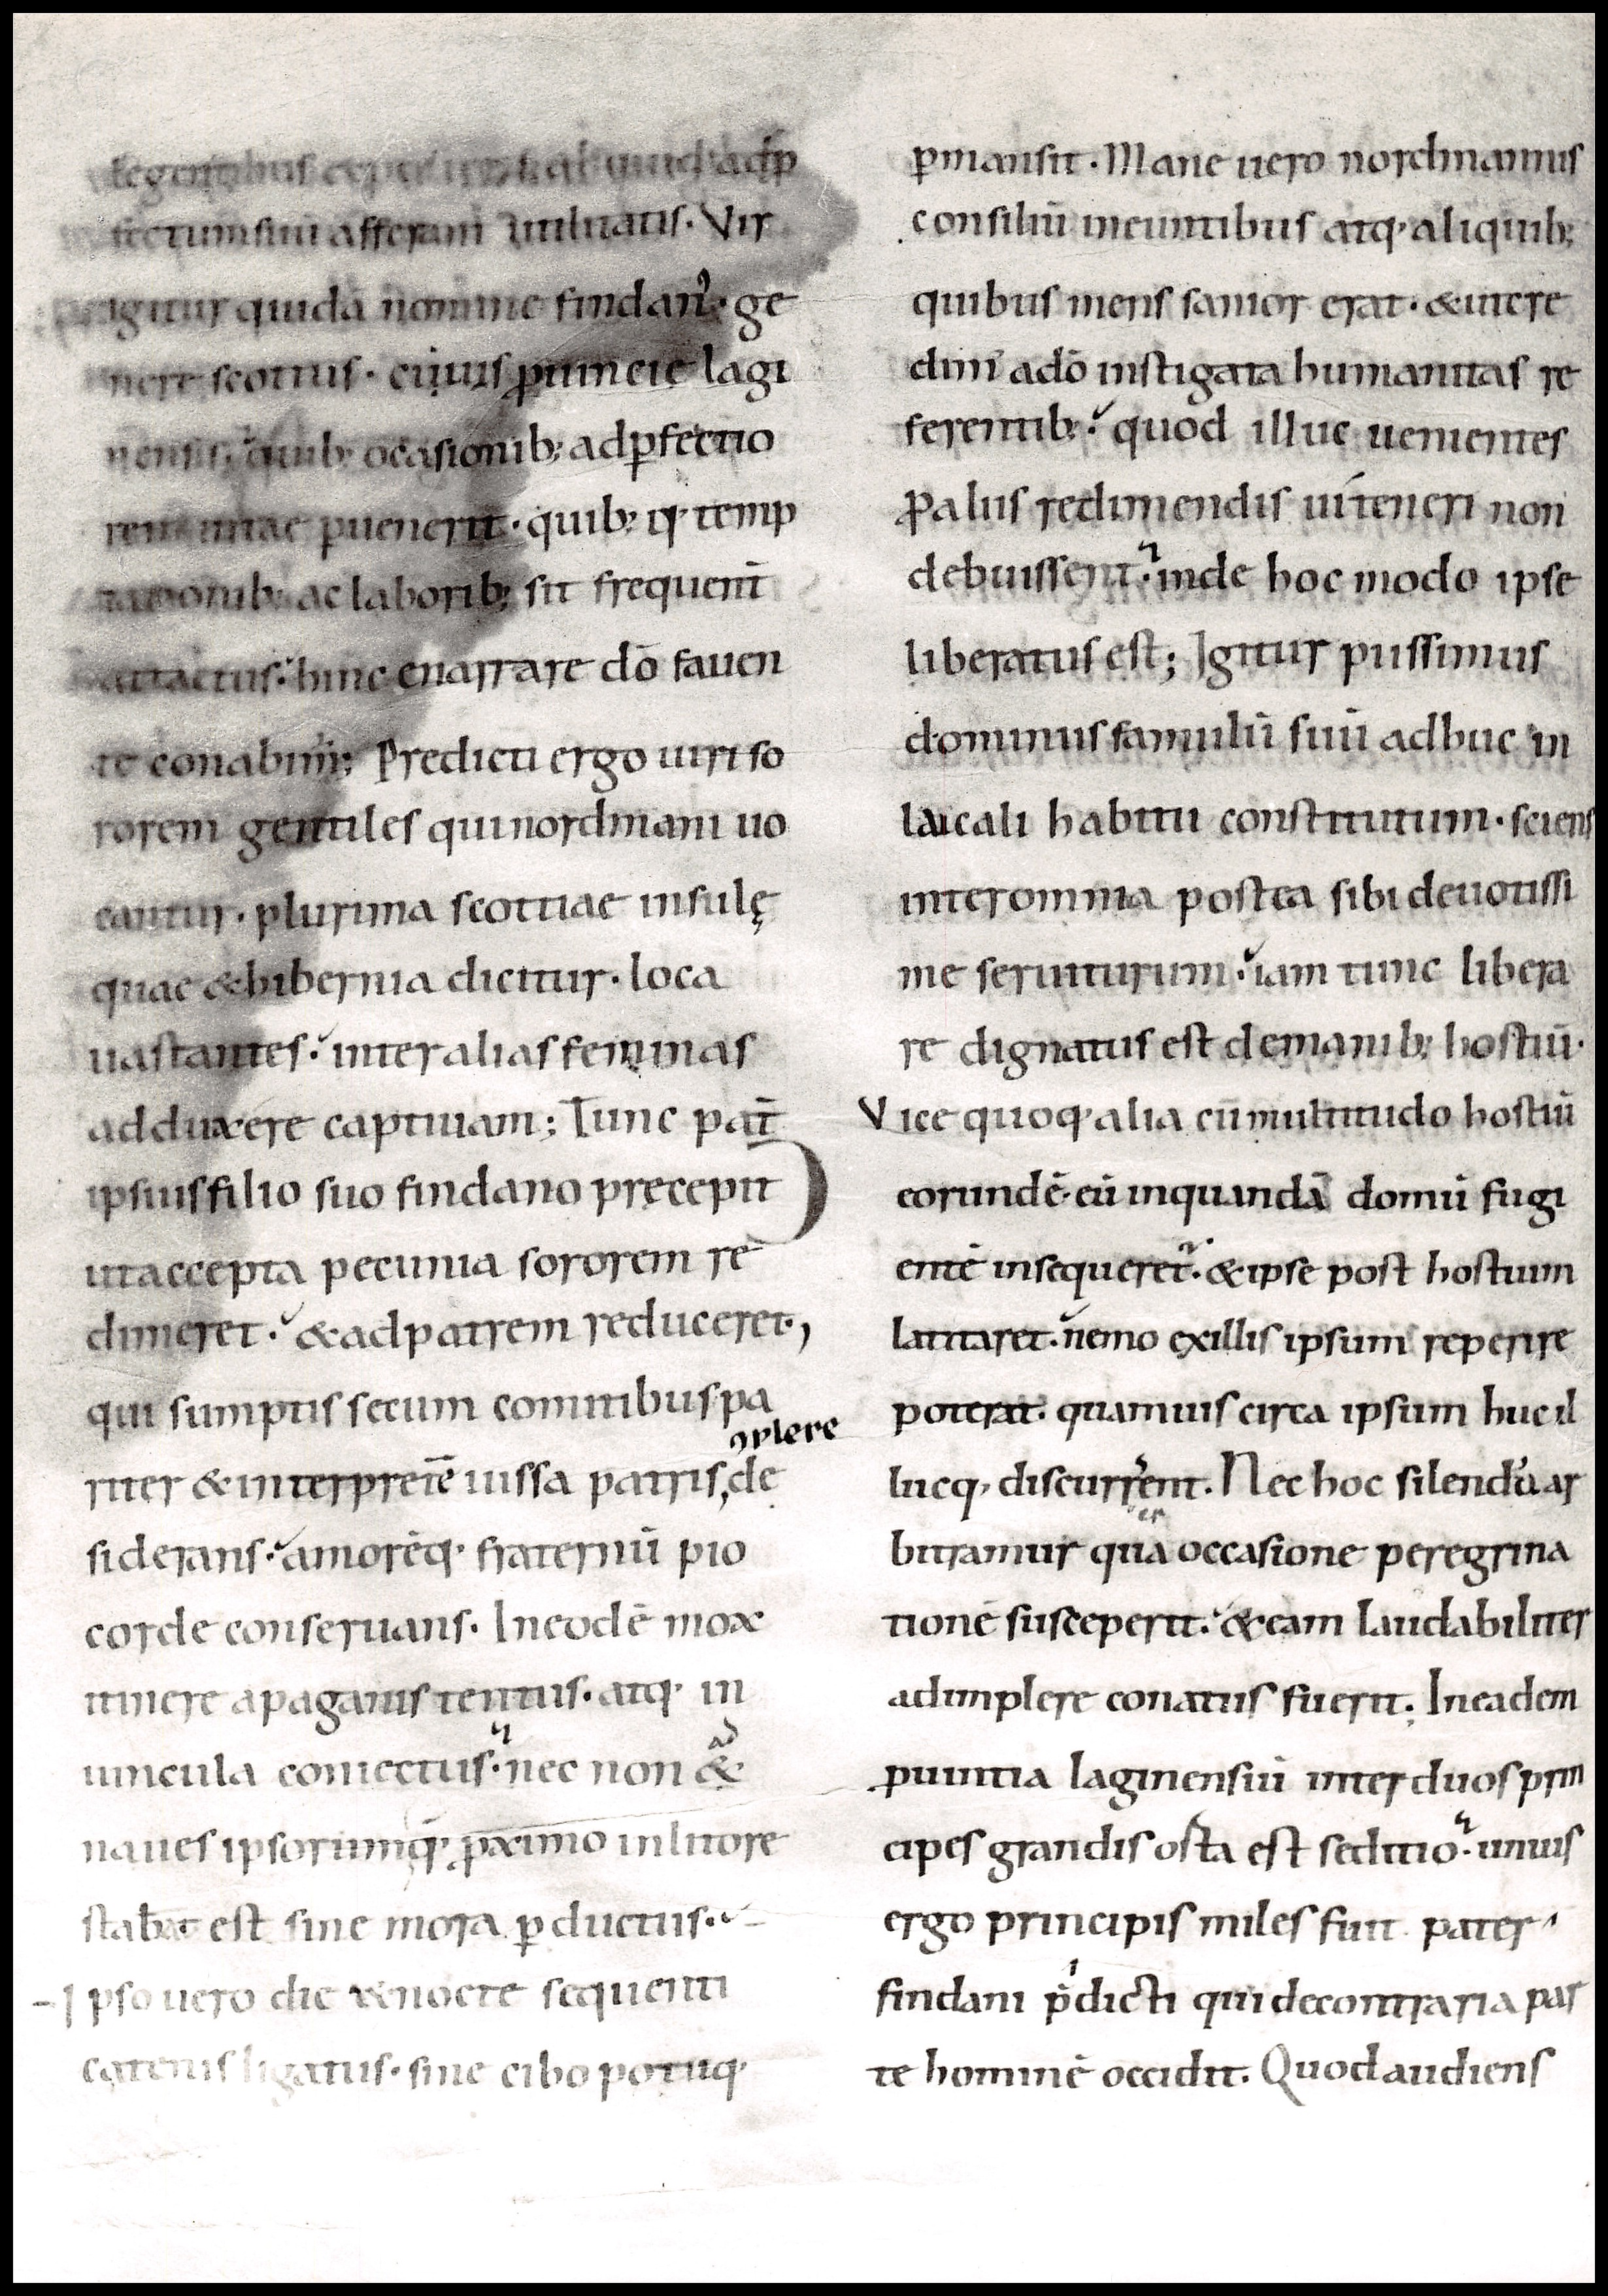 legentibus adp
fectum suũ afferant utilitatis. Vir
igitur quidã nomine findan' ge
nere scottus. cuius ꝓuincie lagi
nensis; quib; ocasionib; ad ꝑfectio
rem uitae ꝑuenerit. quib; q; temp
tationib; ac laborib; sit frequent̄
attactus. hinc enarrare dō fauen
te conabim̄; Predicti ergo uiri so
rorem gentiles qui nordmanni uo
cantur. plurima scottiae insulę
quae & hibernia dicitur. loca
uastantes. inter alias feminas
adduxere captiuam; Tunc pat̄
ipsius filio suo findano pręcepit
ut accepta pecunia sororem re
dimeret. & ad patrem reduceret.,
qui sumptis secum comitibus pa
ꝯplere
riter & interpretē iussa patris, de
siderans. amorēq; fraternū pio
corde conseruans. In eodē mox
itinere a paganis tentus. atq; in
uincula coniectus. nec non & ad
naues ipsorum q̄ ꝓximo in litore
stabat est sine mora ꝑductus.
Ipso uero die & nocte sequenti
catenis ligatus. sine cibo potuq;
ꝑmansit. Mane uero nordmannis
consiliū ineuntibus atq; aliquib;
quibus mens sanior erat. & in ere
dim' a dō instigata humanitas re
ferentib; quod illuc uenientes
ꝓ aliis redimendis ui teneri non
debuissent. inde hoc modo ipse
liberatus est; Igitur piissimus
dominus famulū suū adhuc in
laicali habitu constitutum. sciens
inter omnia postea sibi deuotissi
me seruiturum. iam tunc libera
re dignatus est de manib; hostiū.
Vice quoq; alia cū multitudo hostiū
eorundē. eū in quandā domū fugi
entē insequeret̃. & ipse post hostium
latitaret. nemo ex illis ipsum reperire
poterat. quamuis circa ipsum huc il
lucq; discurrent. Nec hoc silendū ar
er
bitramur qua occasione peregrina
tionē susceperit. & eam laudabiliter
adimplere conatus fuerit; In eadem
ꝓuintia laginensiū inter duos prin
cipes grandis osta est seditio. unius
ergo principis miles fuit pater
findani p̄dicti qui de contraria par
te hominē occidit. Quod audiens